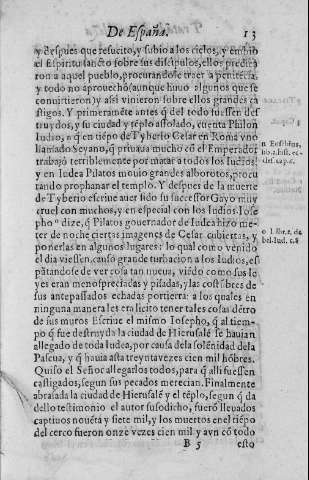 De España. 13
y despues que resucito, y subio a los cielos, y embio
el espiritu sancto sobre sus discipulos, ellos predica
ron a aquel pueblo, procurandose traer a penitēcia,
y todo no aprouechò (aunque huuo algunos que se
conuirtieron) y assi vinieron sobre ellos grandes ca
stigos. Y primeramēte antes q̄ del todo fuessen des
truydos, y su ciudad y tēplo assolado, cuenta Philon
Iudio, n q̄ en tiēpo de Tyberio Cesar en Roma vno
llamado Seyano, q̄ priuaua mucho cō el Emperador
trabajó terriblemente por matar a todos los Iudios,
y en Iudea Pilatos mouio grandes alborotos, procu
rando prophanar el templo. Y despues de la muerte
de Tyberio escriue auer sido su successor Gayo muy
cruel con muchos, y en especial con los Iudios. Iose-
pho º dize, q̄ Pilatos gouernador de Iudea hizo me-
ter de noche ciertas imagenes de Cesar cubiertas, y
ponerlas en algunos lugares: lo qual como venido
el dia viessen, causó grande turbacion a los Iudios, es
pātandose de ver cosa tan nueua, viēdo como sus le
yes eran menospreciadas y pisadas, y las costūbres de
sus antepassados echadas por tierra: a los quales en
ninguna manera les era licito tener tales cosas dētro
de sus muros Escriue el mismo Iosepho, q̄ al tiem-
po q̄ fue destruyda la ciudad de Hierusalē se hauian
allegado de toda Iudea, por causa de la solēnidad de la
Pascua, y q̄ hauia asta treynta vezes cien mil hōbres.
Quiso el Señor allegarlos todos, para q̄ alli fuessen
castigados, segun sus pecados merecian. Finalmente
abrasada la ciudad de Hierusalē y el tēplo, segun q̄ da
dello testimonio el autor susodicho, fuerō lleuados
captiuos nouēta y siete mil, y los muertos en el tiēpo
del cerco fueron onze vezes cien mil y aun cō todo
B 5 esto
n Eusebius,
lib. 2. hist. ec-
clef. cap. 5.
o Lib. 2. de
bel. Iud. c. 8